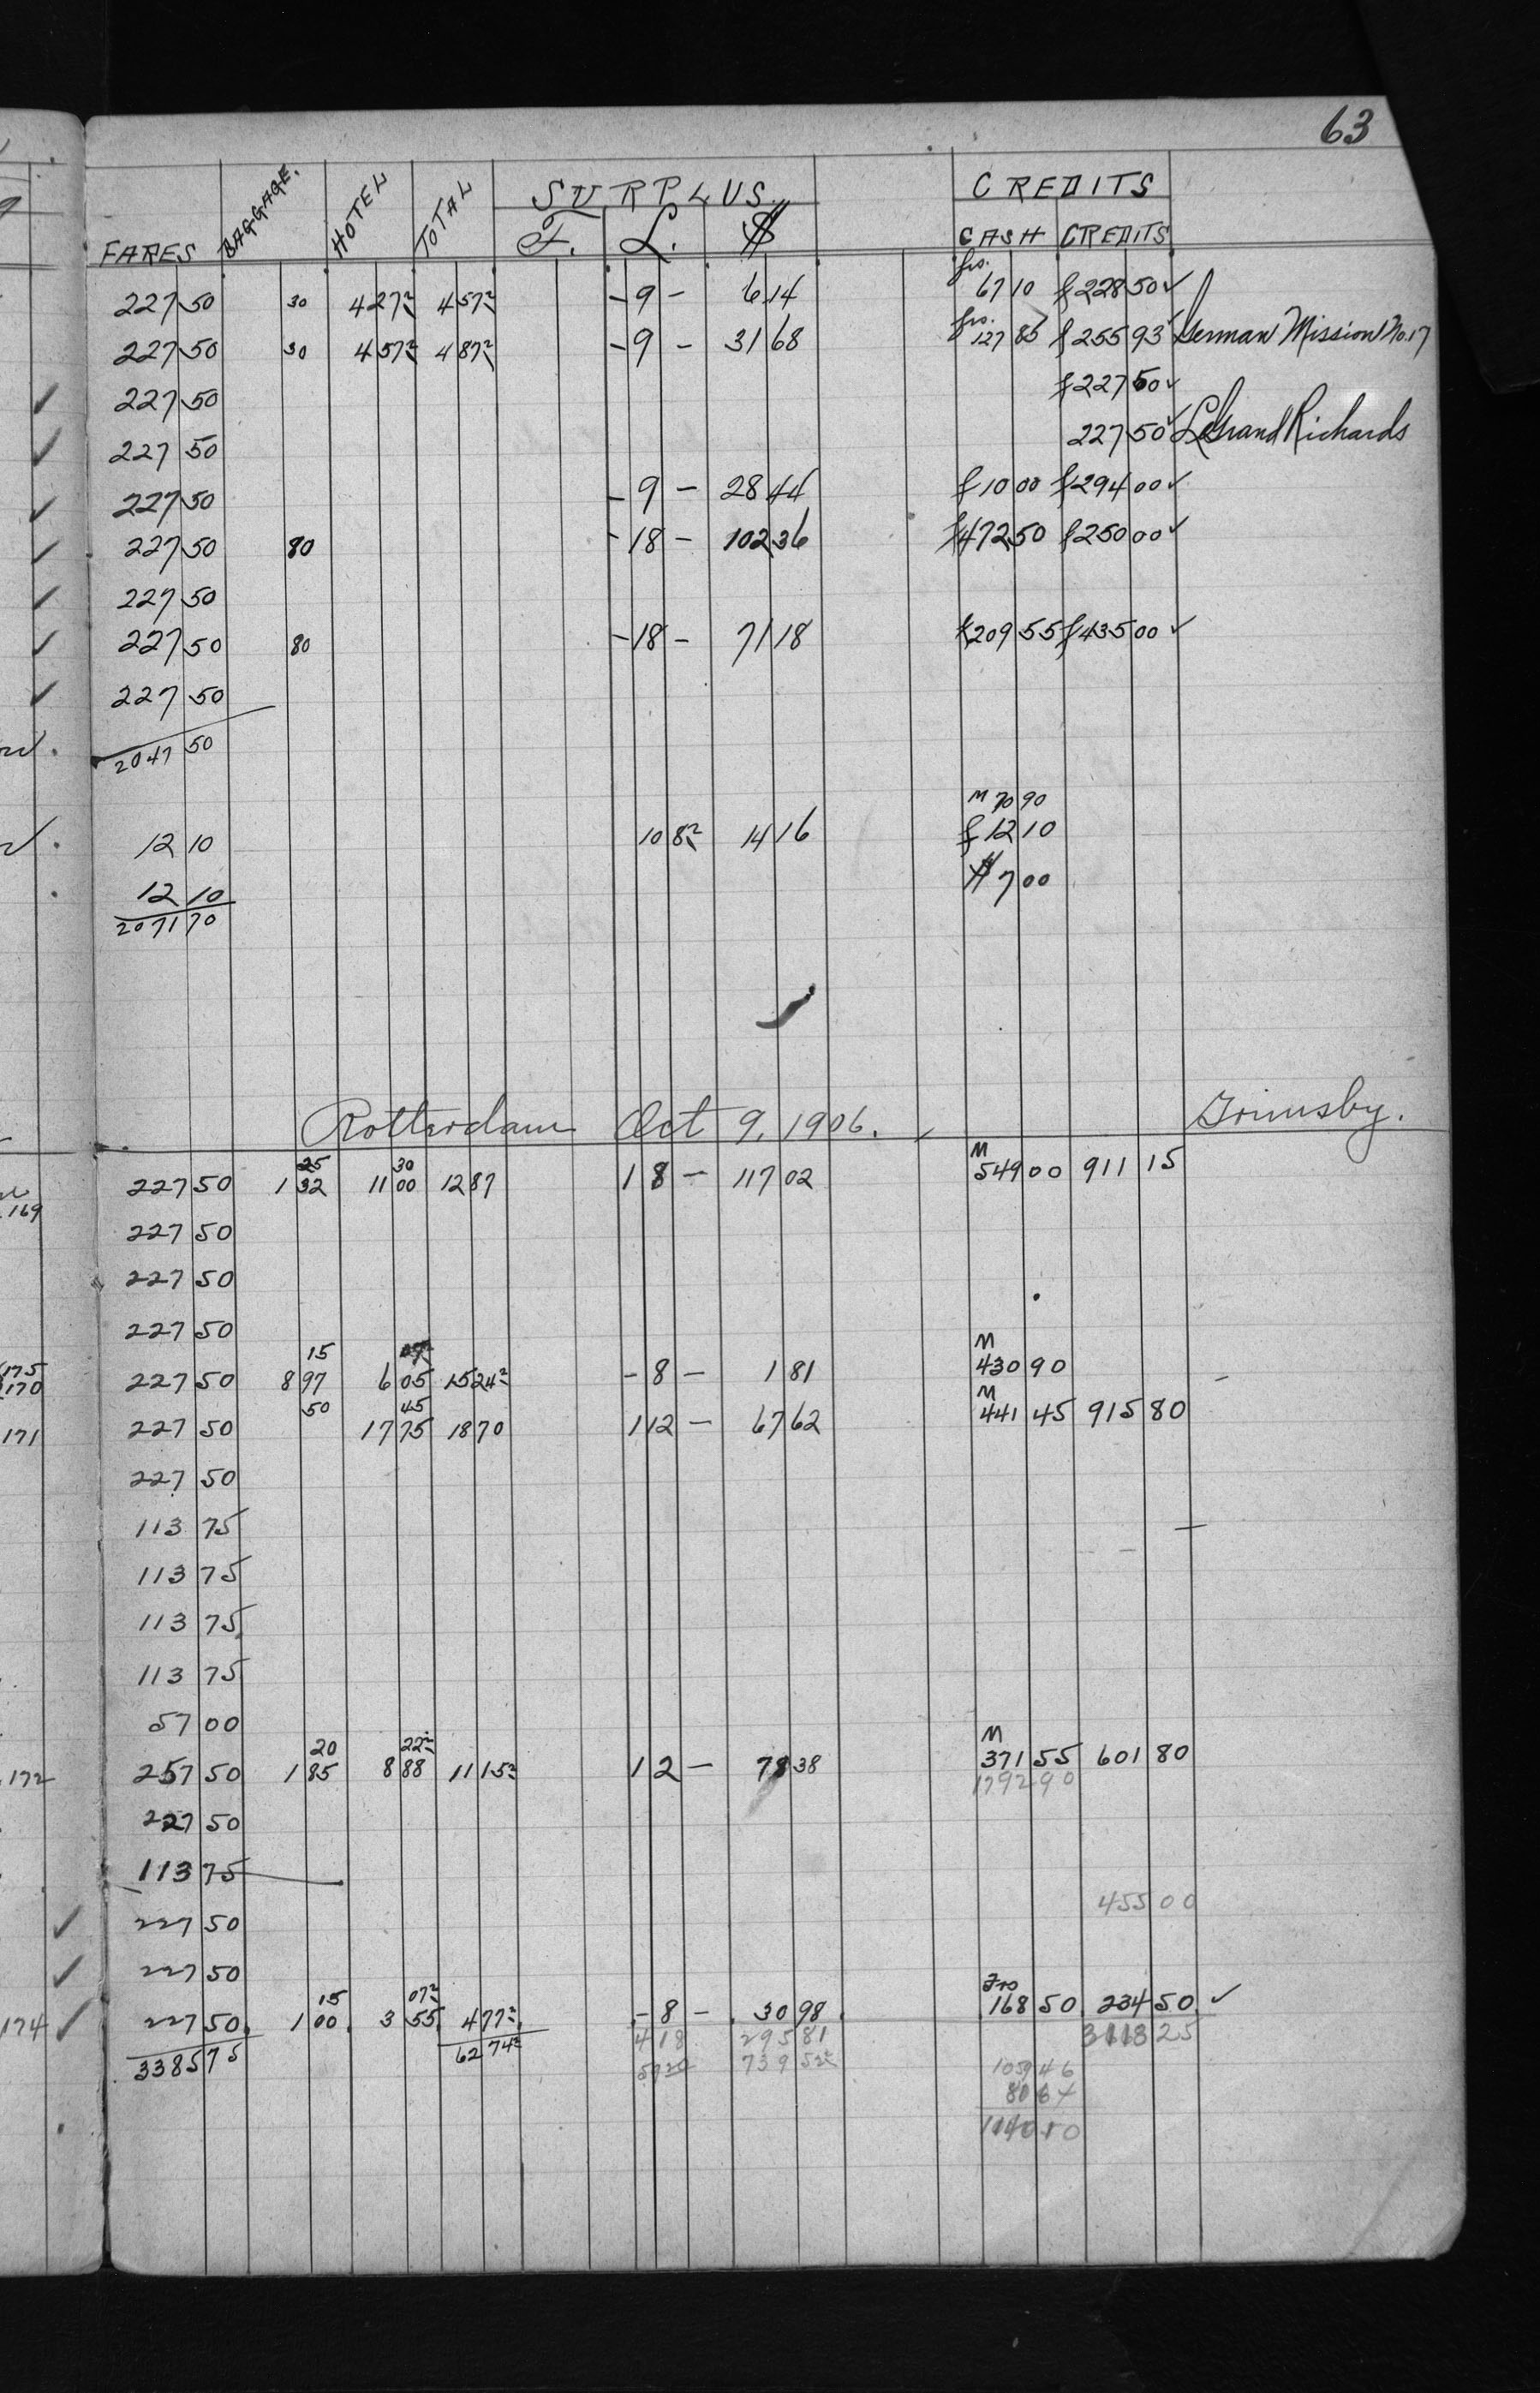 63
SURPLUS. CREDITS
FARES BAGGAGE. HOTEL TOTAL F. L. $ CASH CREDITS
227 50 30 4 27² 4 57² - 9 - 6 14 frs. 67 10 f 228 50 ✓
227 50 30 4 57² 4 87² - 9 - 31 68 frs. 127 85 f 255 93 ✓ German Mission No. 17
✓ 227 50 f 227 50 ✓
✓ 227 50 227 50 ✓ LeGrand Richards
✓ 227 50 - 9 - 28 44 f 10 00 f 294 00 ✓
✓ 227 50 80 - 18 - 102 36 f 472 50 f 250 00 ✓
✓ 227 50
✓ 227 50 80 - 18 - 71 18 f 209 55 f 435 00 ✓
✓ 227 50
2047 50
M 70 90
12 10 10 8² 14 16 f 12 10
12 10 $ 7 00
2071 70
Rotterdam Oct 9, 1906. Grimsby.
25 30 M
227 50 1 32 11 00 12 87 1 8 - 117 02 549 00 911 15
169
227 50
227 50
227 50
15 07² M
175
170 227 50 8 97 6 05 15 24² - 8 - 1 81 430 90
50 45 M
171 227 50 17 75 18 70 1 12 - 67 62 441 45 915 80
227 50
113 75
113 75
113 75
113 75
57 00
20 22² M
172 257 50 1 85 8 88 11 15² 1 2 - 78 38 371 55 601 80
1792 90
227 50
113 75
✓ 227 50 455 00
✓ 227 50
15 07² Frs
174 ✓ 227 50 1 00 3 55 4 77² - 8 - 30 98 168 50 234 50 ✓
3385 75 62 74² 4 18 295 81 3118 25
739 52²
1059 46
80 64
1140 10